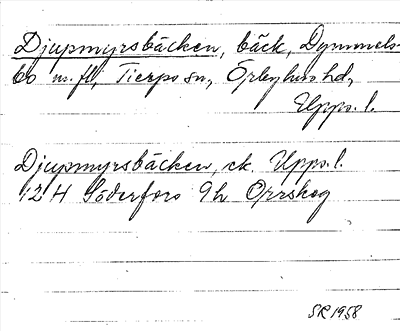 Djupmyrsbäcken, bäck, Dymmels-
bo m.fl., Tierps sn, Örbyhus hd,
Upps. l.
Djupmyrsbäcken, ek. Upps. l.
12 H Söderfors 9h Orrskog
SR 1958